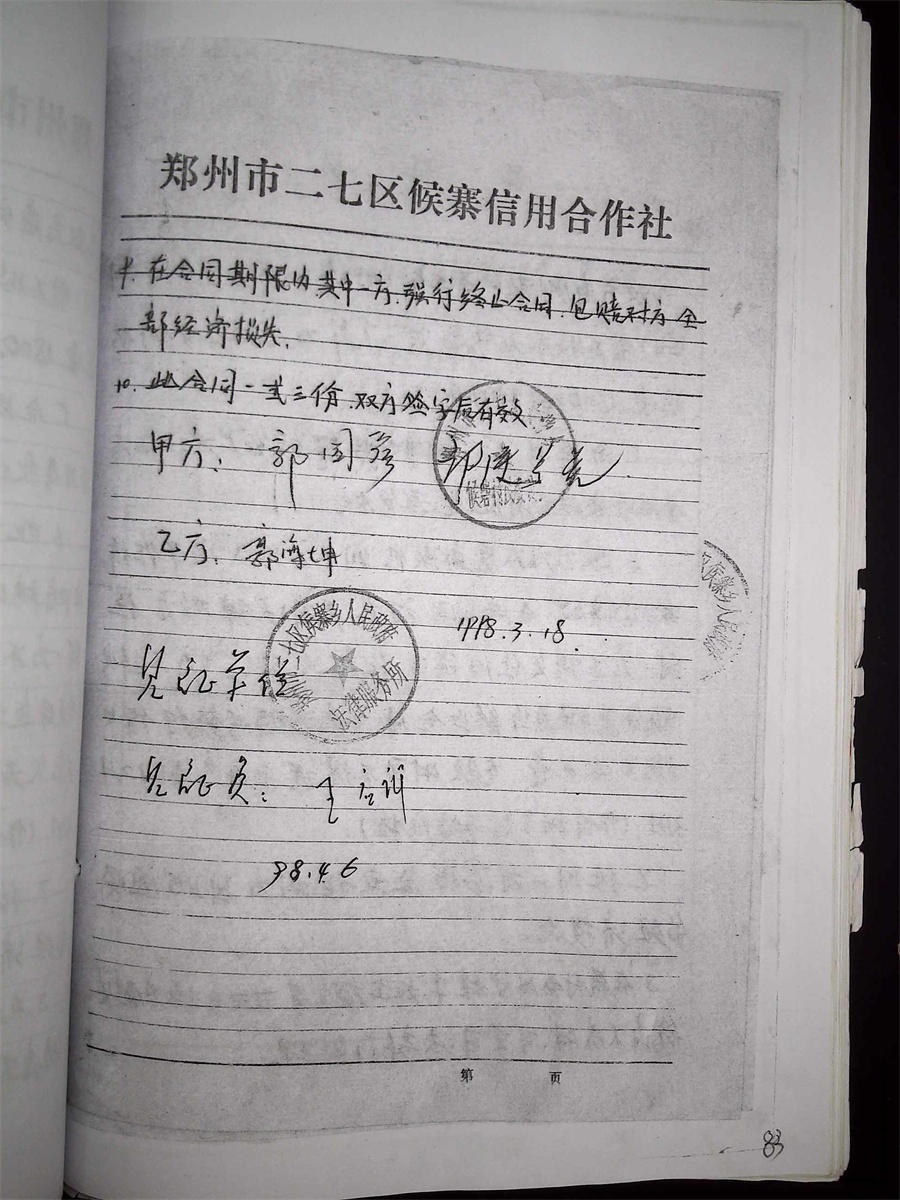 郑州市二七区候寨信用合作社
9. 在合同期限内其中一方,强行终止合同,包赔对方全
部经济损失.
10. 此合同一式三份,双方签字后有效
甲方: 郭国彦
候寨村民委
乙方: 郭海坤
区侯寨乡人民
1998.3.18
二七区侯寨乡人民政府
法律服务所
见证单位
见证员: 王
98.4.6
第 页
83